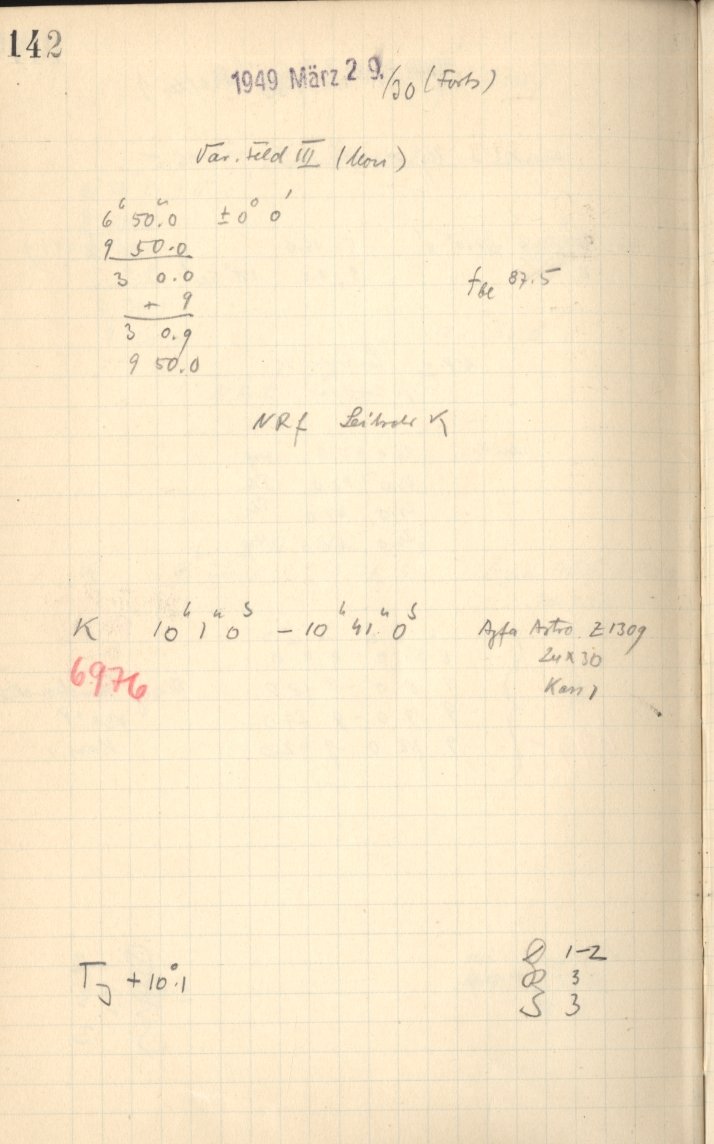 142
1949 März 29./30 (Forts)
Var. Feld III (Mon)
6ʰ 50ᵐ.0 ±0° 0'
9 50.0
3 0.0
+ 9
3 0.9
9 50.0
f 87.5
NRf K
K 10ʰ 1ᵐ 0ˢ – 10ʰ 41ᵐ 0ˢ Agfa Astro. Z 1309
24 x 30
6976
T +10°.1
1–2
3
S 3